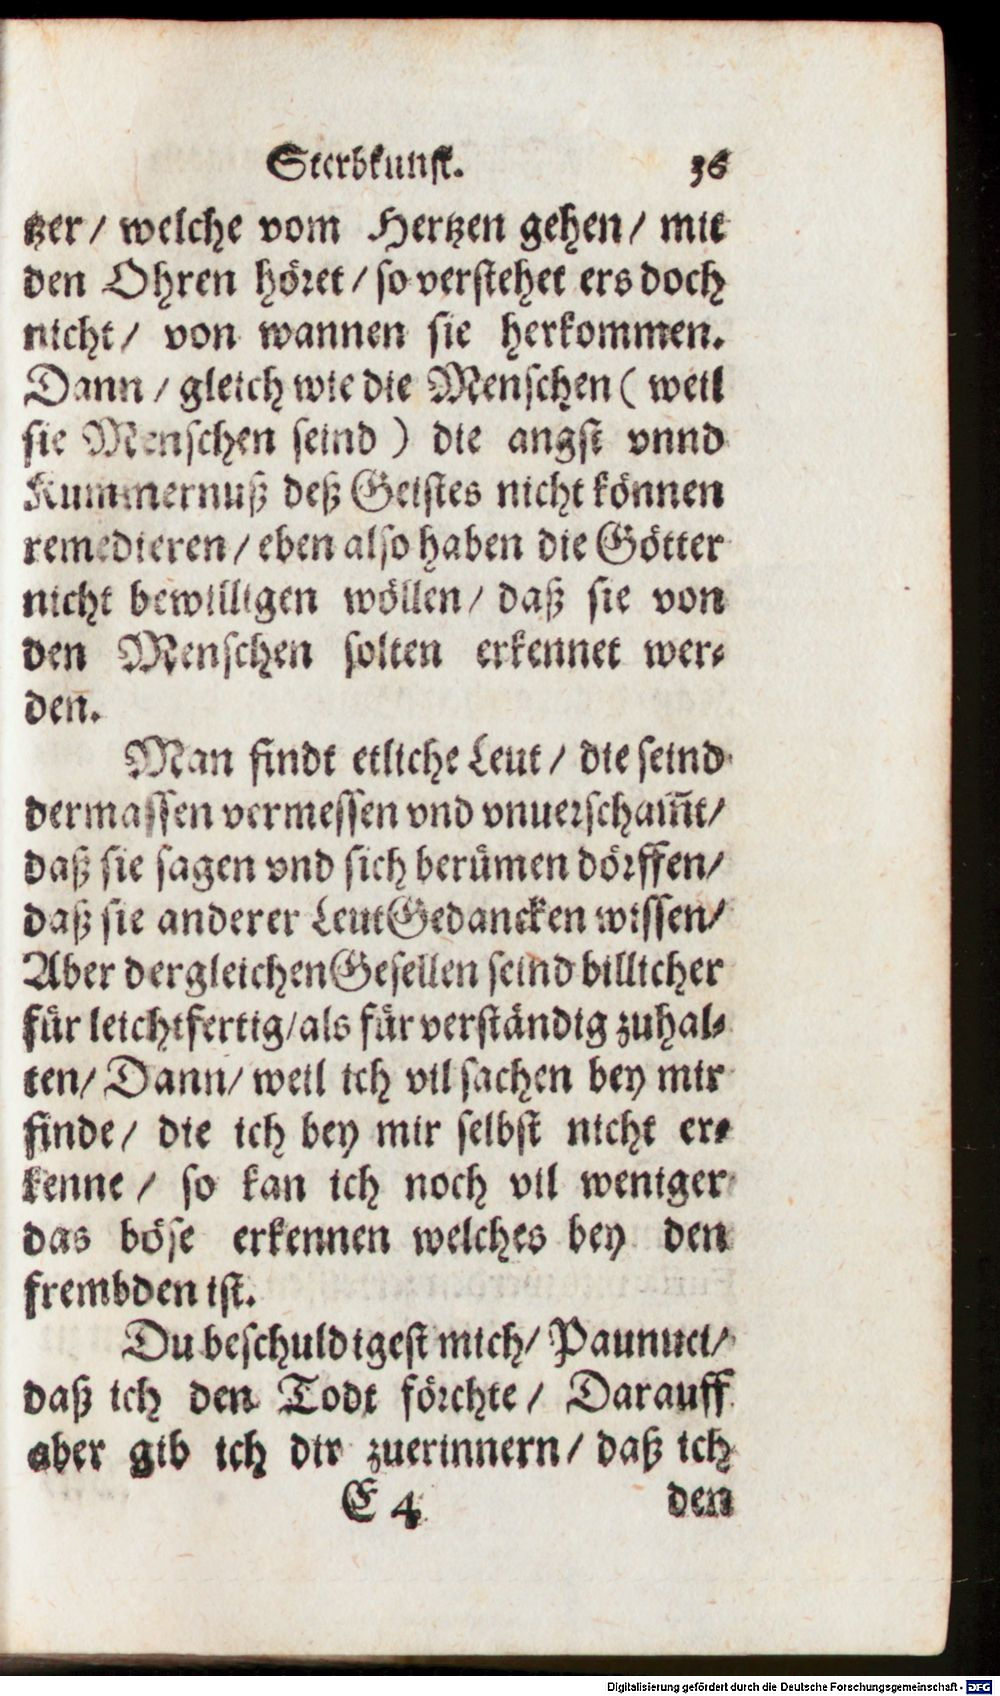 Sterbkunst. 36
tzer / welche vom Hertzen gehen / mit
den Ohren höret / so verstehet ers doch
nicht / von wannen sie herkommen.
Dann / gleich wie die Menschen ( weil
sie Menschen seind ) die angst vnnd
Kummernuß deß Geistes nicht können
remedieren / eben also haben die Götter
nicht bewilligen wöllen / daß sie von
den Menschen solten erkennet wer-
den.
Man findt etliche Leut / die seind
dermassen vermessen vnd vnuerscham̃t /
daß sie sagen vnd sich berümen dörffen /
daß sie anderer Leut Gedancken wissen /
Aber dergleichen Gesellen seind billicher
für leichtfertig / als für verständig zuhal-
ten / Dann / weil ich vil sachen bey mir
finde / die ich bey mir selbst nicht er-
kenne / so kan ich noch vil weniger
das böse erkennen welches bey den
frembden ist.
Du beschuldigest mich / Panuuci /
daß ich den Todt förchte / Darauff
aber gib ich dir zuerinnern / daß ich
E 4 den
Digitalisierung gefördert durch die Deutsche Forschungsgemeinschaft - DFG